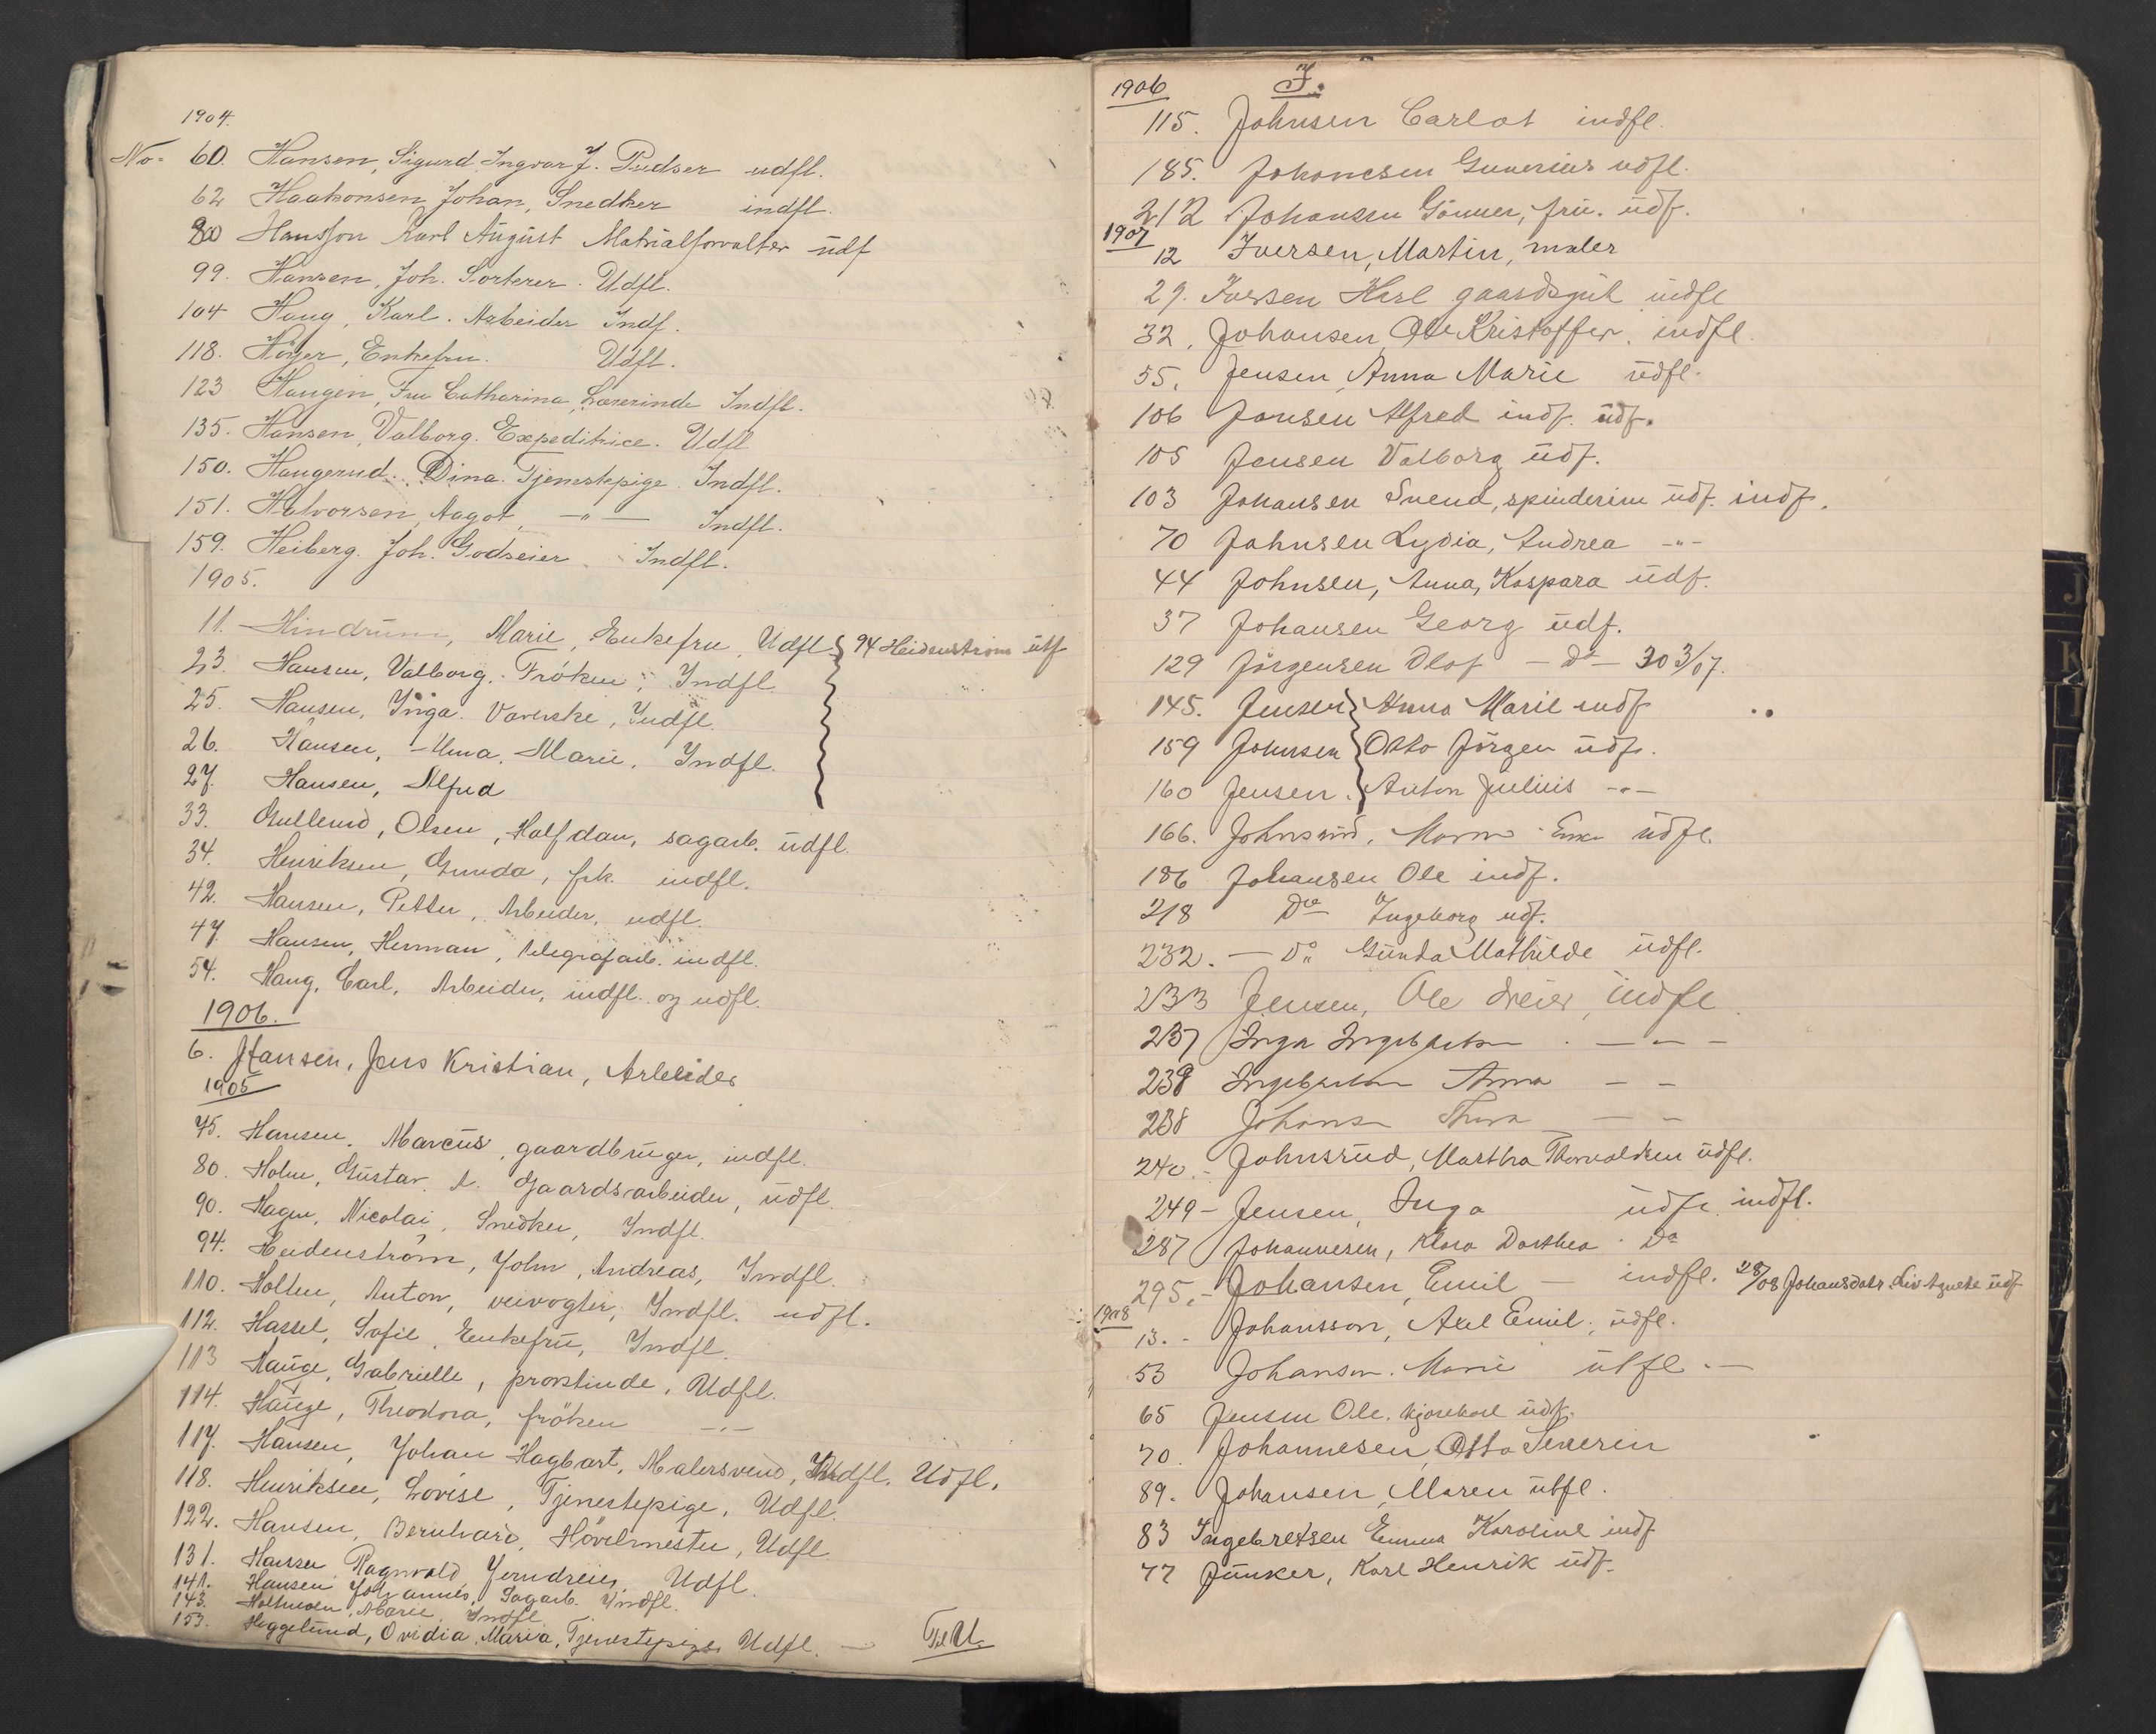 1904.
No. 60. Hansen, Sigurd Ingvar J. Pudser udfl.
62 Haakonsen Johan, Snedker indfl.
80 Hansson Karl August Matrialforvalter udf
99. Hansen, Joh. Sorterer. Udfl.
104 Haug, Karl. Arbeider Indf.
118. Höyer, Enkefru. Udfl.
123 Haugen, Fru Catharina, Lærerinde Indfl.
135. Hansen, Valborg. Expeditrice. Udfl
150. Haugerud. Dina. Tjenestepige. Indfl.
151. Halvorsen, Aagot, —"— Indfl.
159. Heiberg. Joh. Godseier. Indfl.
1905.
11. Hindrum, Marie, Enkefru, Udfl. 94 Heidenstrøm utf
23. Hansen, Valborg. Fröken, Indfl.
25. Hansen, Inga. Væverske, Indfl.
26. Hansen, Anna, Marie, Indfl.
27. Hansen, Alfred
33. Gullerud, Olsen, Halfdan, sagarb. udfl.
34. Henriksen, Gunda, frk. indfl.
42. Hansen, Petter, Arbeider, udfl.
47. Hansen, Herman, telegrafarb. indfl.
54. Haug, Carl, Arbeider, indfl. og udfl.
1906.
6. Hansen, Jens Kristian, Arbeider
1905
75. Hansen, Marcus, gaardbruger, indfl.
80. Holm, Gustav. A. Gaardsarbeider, udfl.
90. Hagen, Nicolai, Snedker, Indfl.
94. Heidenström, John, Andreas, Indfl.
110. Holten, Anton, veivogter, Indfl. udfl.
112. Hassel, Sofie, Enkefru, Indfl.
113 Hauge, Gabrielle, provstinde, Udfl.
114. Hauge, Theodora, fröken —"—
117. Hansen, Johan Hagbart, Malersvend, Indfl. Udfl.
118. Henriksen, Lovise, Tjenestepige, Udfl.
122. Hansen, Bernhard, Hövlmester, Udfl.
131. Hansen Ragnvald, Jerndreier, Udfl.
141. Hansen Johannes, Sagarb. Indfl.
143. Marie, Indfl.
153. Heggelund, Ovidia, Maria, Tjenestepige, Udfl. — Til U.
1906 J.
115. Johnsen Carlot indfl.
185. Johanesen Gunerius udfl.
212 Johansen Gönner, fru. udf.
1907
12 Iversen, Martin, maler
29. Iversen Karl gaardsgut indfl
32. Johansen, Ole Kristoffer, indfl.
55. Jensen Anna Marie udfl.
106 Jansen Alfred indf. udf.
105 Jensen Valborg udf.
103 Johansen Svend, udf. indf.
70 Johnsen Lydia, Andrea —"—
44 Johnsen, Anna, Kaspara udf.
37 Johansen Georg udf.
129 Jörgensen Olof — do — 30 3/07.
145. Jensen Anna Marie indf
159 Johnsen Otto Jörgen udf.
160 Jensen. Anton Julius —"—
166. Johnsrud, udfl.
186 Johansen Ole indf.
218 Do Ingeborg udf.
232. — Do Gunda Mathilde udfl.
233 Jensen, Ole dreier, indfl.
237 Inga Ingebretsen — " —
239 Ingebretsen Anna — —
238 Johansen Thora — —
240. Johnsrud, Martha Thorvaldsen udfl.
249 – Jensen, Inga udfl. indfl.
287 Johannesen, Klara Dorthea Do
295. – Johansen, Emil — indfl. 28/08 Johansdatr. Liv Agnete udf
1908
13. – Johansson, Axel Emil, udfl.
53 Johansen. Marie utfl. —
65 Jensen Ole. kjörekarl udf.
70. Johannesen, Otto Severin
89. Johansen, Maren utfl.
83 Ingebretsen Emma Karoline indf
77 Junker, Karl Henrik udf.
J
K